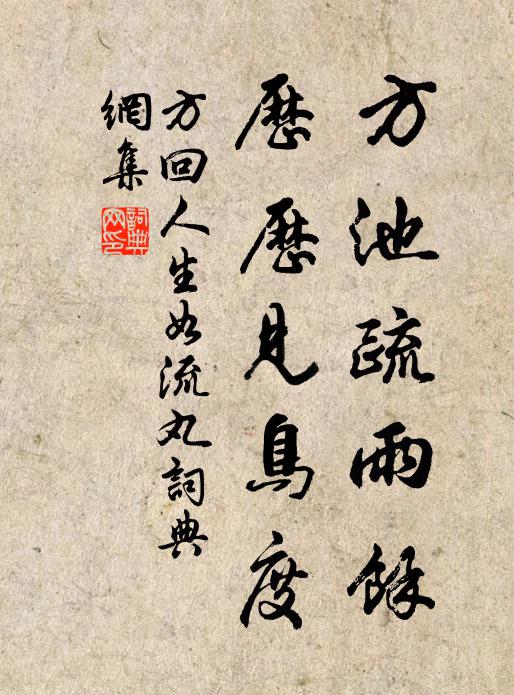 方池疏雨餘
歷歷見鳥度
方回人生如流丸詞典
網集
詞典網印